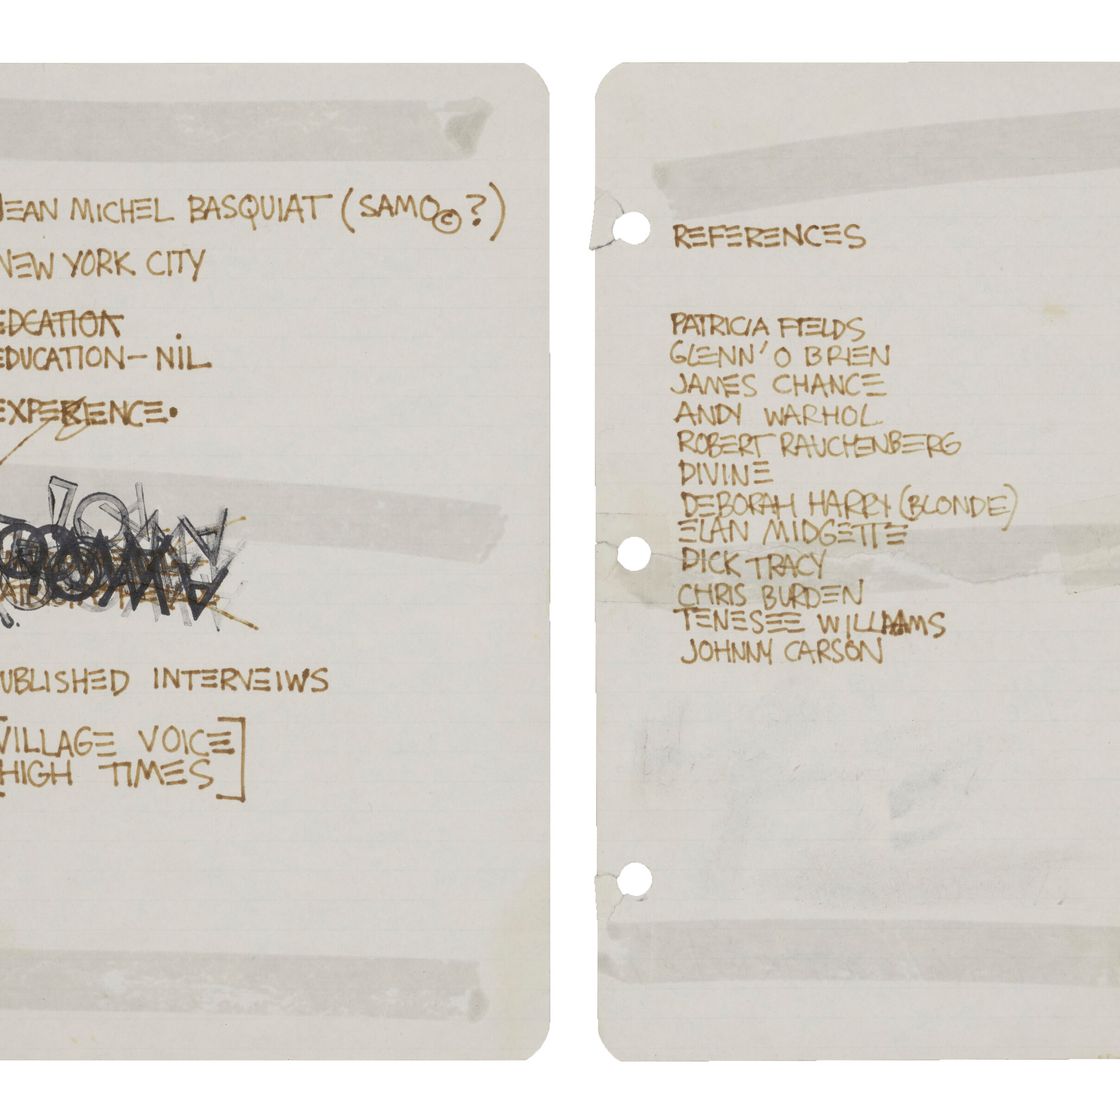 JEAN MICHEL BASQUIAT (SAMO©?)
NEW YORK CITY
EDCATION
EDUCATION-NIL
EXPERIENCE.
UBLISHED INTERVEIWS
[VILLAGE VOICE]
[HIGH TIMES]
REFERENCES
PATRICIA FIELDS
GLENN'O BRIEN
JAMES CHANCE
ANDY WARHOL.
ROBERT RAUCHENBERG
DIVINE
DEBORAH HARRY (BLONDE)
ELAN MIDGETTE
DICK TRACY
CHRIS BURDEN
TENESEE WILLIAMS
JOHNNY CARSON